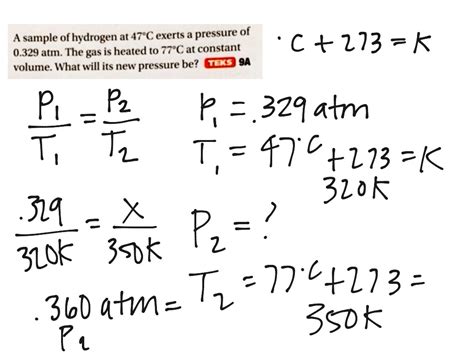 A sample of hydrogen at 47°C exerts a pressure of
0.329 atm. The gas is heated to 77°C at constant
volume. What will its new pressure be? TEKS 9A
°C + 273 = K
P₁/T₁ = P₂/T₂
P₁ = .329 atm
T₁ = 47°C + 273 = K
320K
.329/320K = X/350K
P₂ = ?
T₂ = 77°C + 273 =
350K
.360 atm =
P₂